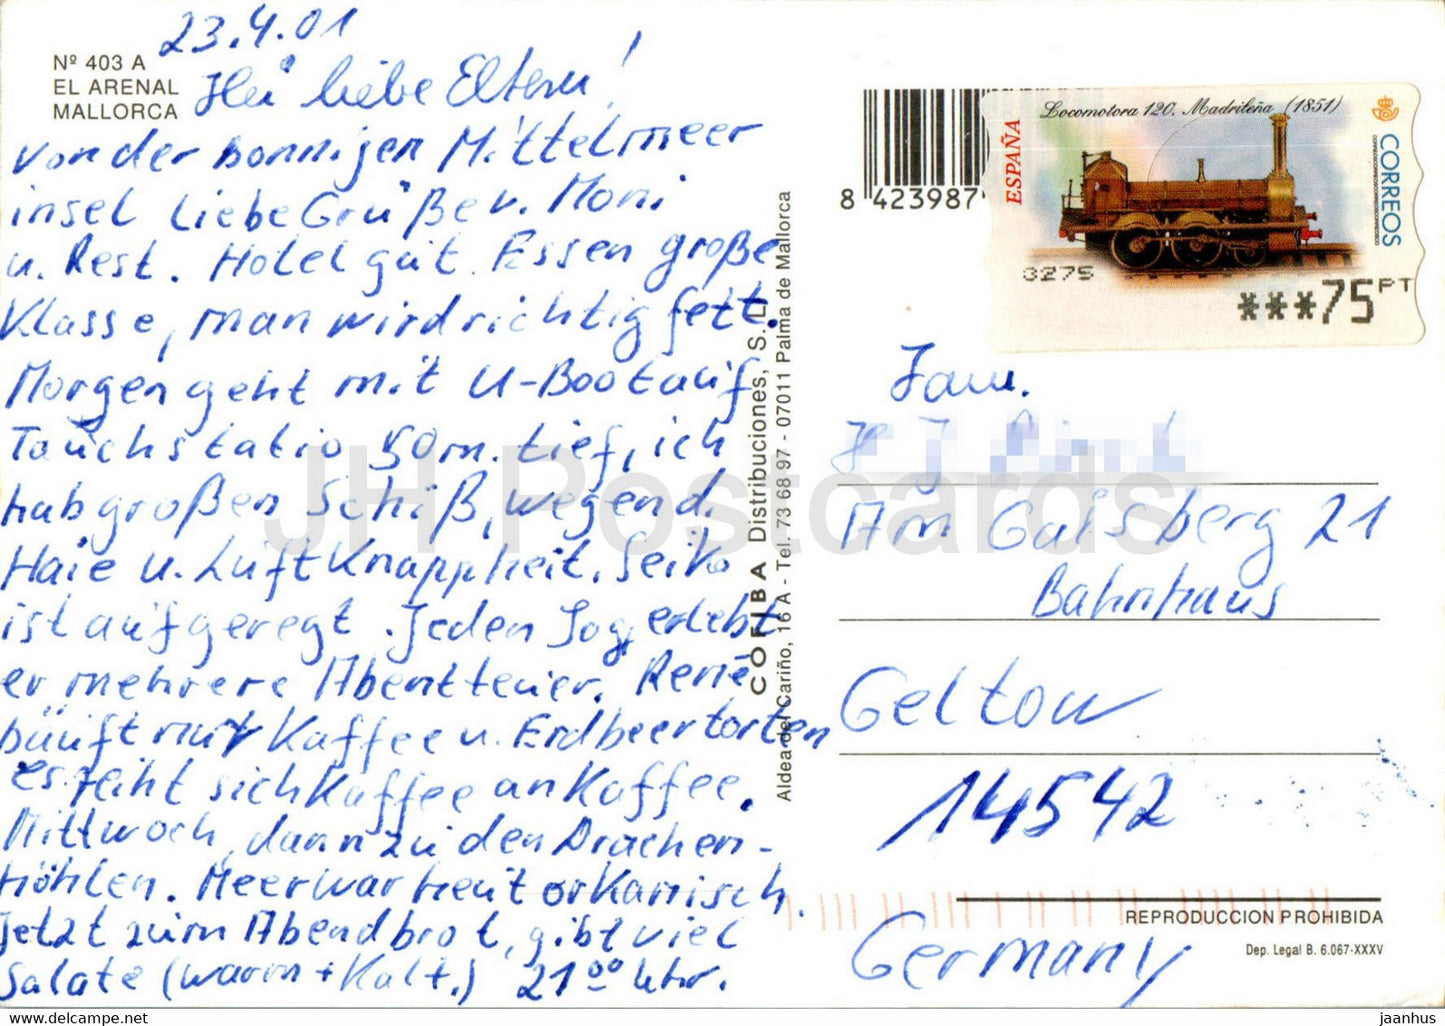 23.4.01
Nº 403 A
EL ARENAL
MALLORCA
Hei liebe Eltern!
von der sonnigen Mittelmeer
insel liebe Grüße v. Moni
u. Rest. Hotel gut. Essen große
Klasse, man wird richtig fett.
Morgen geht mit U-Boot auf
Tauchstatio 50 m. tief, ich
hab großen Schiß, wegen d.
Haie u. Luftknappheit. Heiko
ist aufgeregt. Jeden Tag erlebt
er mehrere Abentteuer. René
säuft nur Kaffee u. Erdbeertorten
es reiht sich Kaffee an Kaffee.
Mittwoch, dann zu den Drachen-
höhlen. Meer war heut orkanisch.
Jetzt zum Abendbrot, gibt viel
Salate (warm + Kalt.) 21⁰⁰ Uhr.
COFIBA Distribuciones, S. L.
Aldea del Cariño, 16 A - Tel. 73 68 97 - 07011 Palma de Mallorca
8 423987
Locomotora 120. Madrileña (1851)
ESPAÑA
CORREOS
3275
***75 PT
Fam.
Am Galsberg 21
Bahnhaus
Geltow
14542
Germany
REPRODUCCION PROHIBIDA
Dep. Legal B. 6.067-XXXV
JH Postcards
jaanhus — https://www.delcampe.net